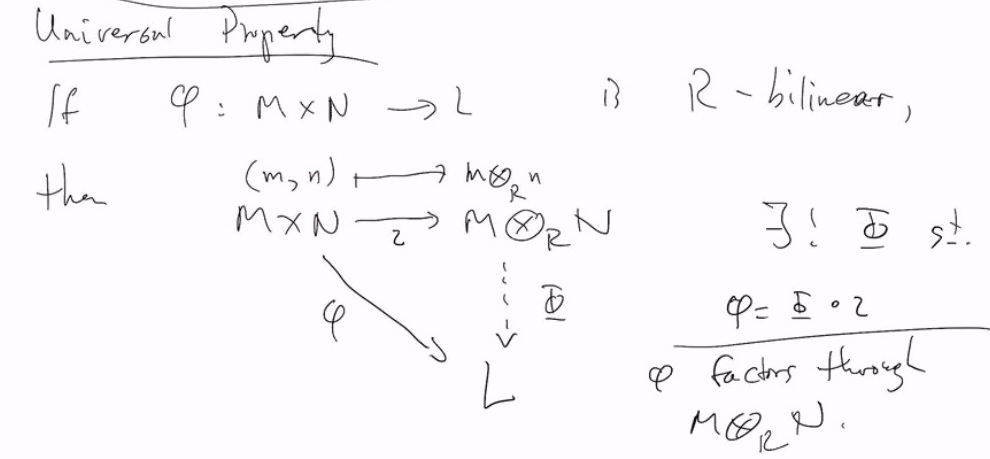 Universal Property
If φ : M × N → L is R-bilinear,
then (m, n) ↦ m ⊗_R n
M × N →_ι M ⊗_R N
∃! Φ st.
φ Φ
φ = Φ ∘ ι
L
φ factors through
M ⊗_R N.